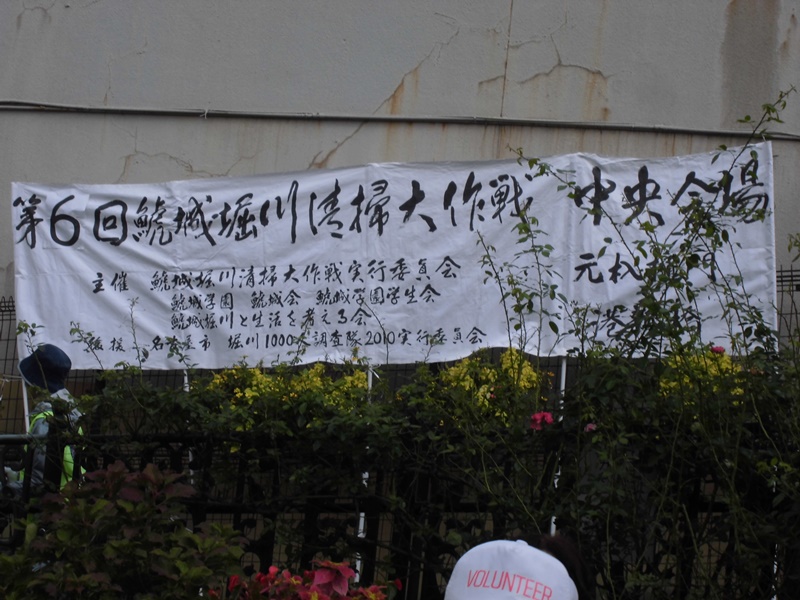 第6回鯱城堀川清掃大作戦 中央会場
主催 鯱城堀川清掃大作戦実行委員会
鯱城学園 鯱城会 鯱城学園学生会
鯱城堀川と生活を考える会
後援 名古屋市 堀川1000人調査隊2010実行委員会
元杁 門
VOLUNTEER